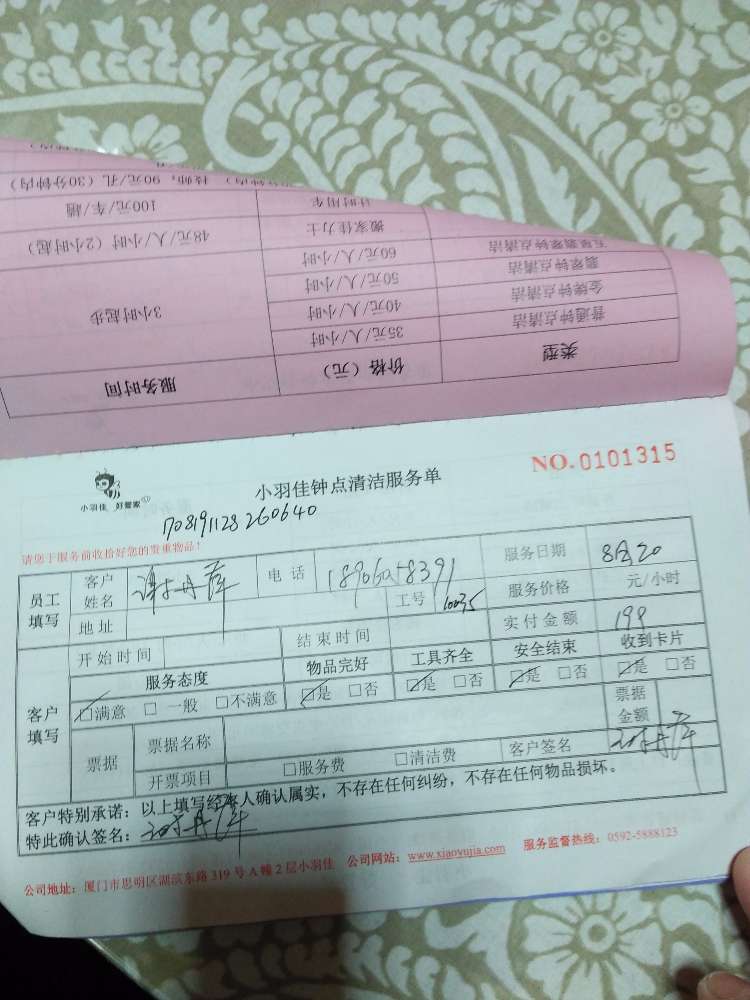 钟内） 技师：90元/孔（30分钟内）
计时用车 100元/车/趟
搬家佳力士 48元/人/小时（2小时起）
五星翡翠钟点清洁 60元/人/小时
翡翠钟点清洁 50元/人/小时
金牌钟点清洁 40元/人/小时 3小时起步
普通钟点清洁 35元/人/小时
类型 价格（元） 服务时间
小羽佳 好管家
小羽佳钟点清洁服务单
NO.0101315
170819112826 0640
请您于服务前收拾好您的贵重物品！
员工填写 客户姓名 谢丹萍 电话 服务日期 8月20
地址 工号 10035 服务价格 元/小时
开始时间 结束时间 实付金额 199
客户填写 服务态度 物品完好 工具齐全 安全结束 收到卡片
☑满意 □一般 □不满意 ☑是 □否 ☑是 □否 ☑是 □否 ☑是 □否
票据 票据名称 票据金额
开票项目 □服务费 □清洁费 客户签名 谢丹萍
客户特别承诺：以上填写经本人确认属实，不存在任何纠纷，不存在任何物品损坏。
特此确认签名：谢丹萍
公司地址：厦门市思明区湖滨东路319号A幢2层小羽佳 公司网站：www.xiaoyujia.com 服务监督热线：0592-5888123